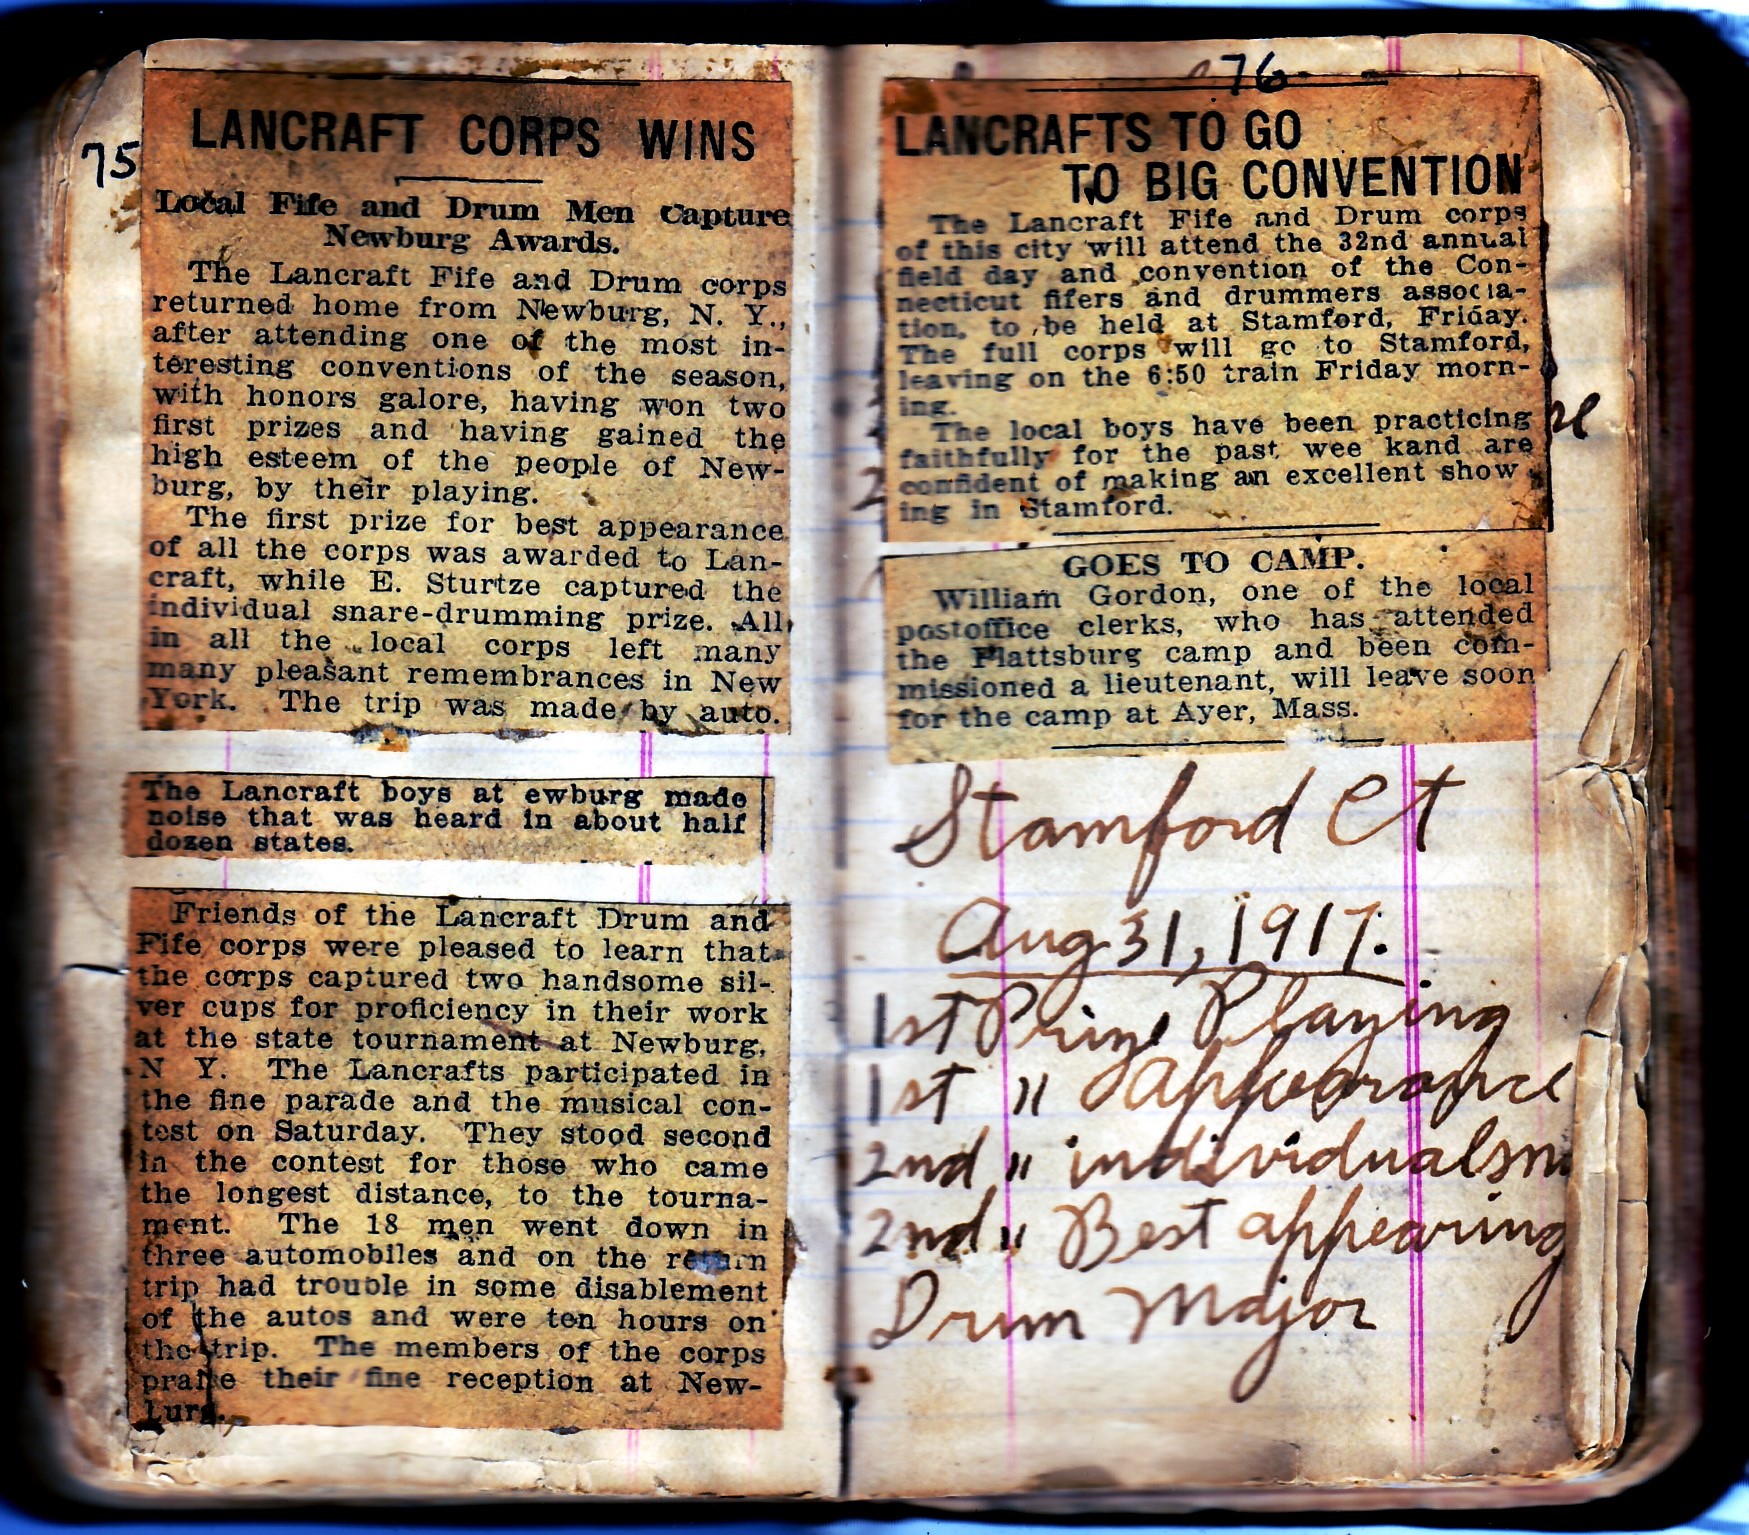 75
LANCRAFT CORPS WINS
Local Fife and Drum Men Capture
Newburg Awards.
The Lancraft Fife and Drum corps
returned home from Newburg, N. Y.,
after attending one of the most in-
teresting conventions of the season,
with honors galore, having won two
first prizes and having gained the
high esteem of the people of New-
burg, by their playing.
The first prize for best appearance
of all the corps was awarded to Lan-
craft, while E. Sturtze captured the
individual snare-drumming prize. All
in all the local corps left many
many pleasant remembrances in New
York. The trip was made by auto.
The Lancraft boys at ewburg made
noise that was heard in about half
dozen states.
Friends of the Lancraft Drum and
Fife corps were pleased to learn that
the corps captured two handsome sil-
ver cups for proficiency in their work
at the state tournament at Newburg,
N Y. The Lancrafts participated in
the fine parade and the musical con-
test on Saturday. They stood second
in the contest for those who came
the longest distance, to the tourna-
ment. The 18 men went down in
three automobiles and on the return
trip had trouble in some disablement
of the autos and were ten hours on
the trip. The members of the corps
praise their fine reception at New-
burg.
76
LANCRAFTS TO GO
TO BIG CONVENTION
The Lancraft Fife and Drum corps
of this city will attend the 32nd annual
field day and convention of the Con-
necticut fifers and drummers associa-
tion, to be held at Stamford, Friday.
The full corps will go to Stamford,
leaving on the 6:50 train Friday morn-
ing.
The local boys have been practicing
faithfully for the past wee kand are
confident of making an excellent show
ing in Stamford.
GOES TO CAMP.
William Gordon, one of the local
postoffice clerks, who has attended
the Plattsburg camp and been com-
missioned a lieutenant, will leave soon
for the camp at Ayer, Mass.
Stamford Ct
Aug 31, 1917.
1st Prize Playing
1st " appearance
2nd " individual sn
2nd " Best appearing
Drum Major